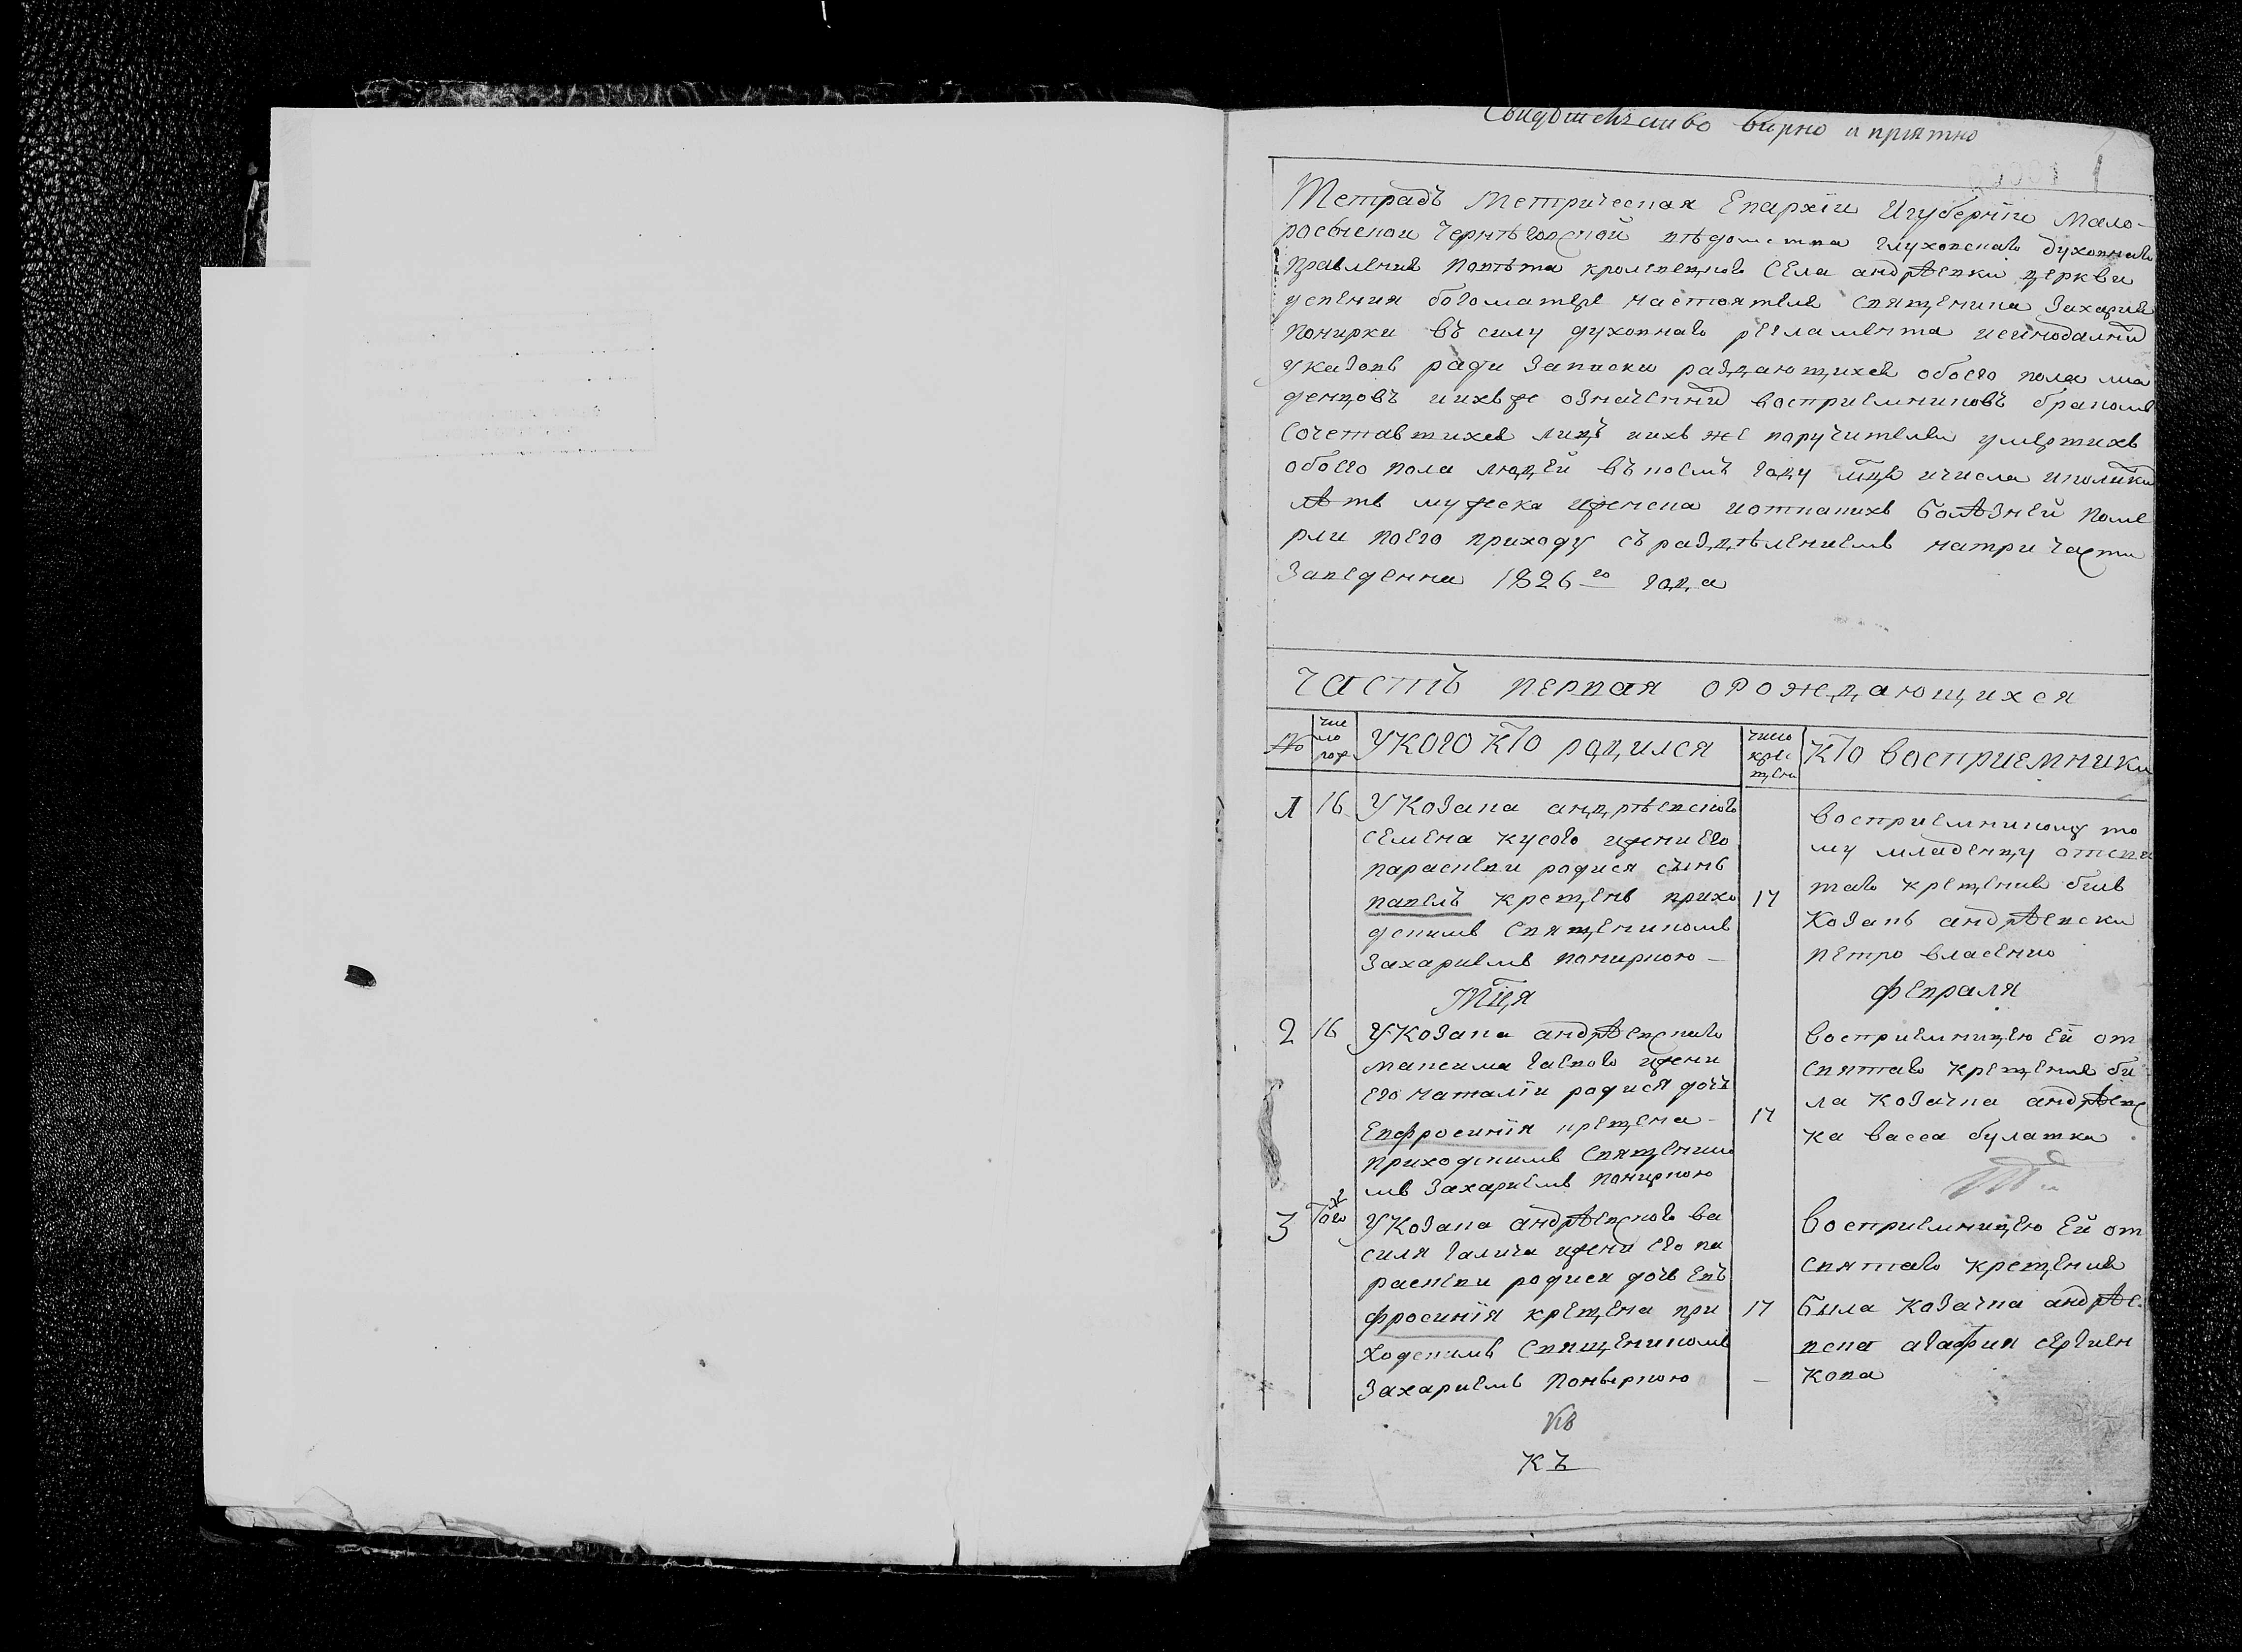 Свидѣтельство вирно и приятно
1
Тетрадъ Метрическая Епархіи Игуберніи Мало-
росыскои Чернѣговской вѣдомства глуховскаго духовнаго
Правления повѣта кролевецкого Села андрѣевки церкви
успения богоматере настоятеля священика Захария
Понирки въ силу духовнаго регламента исинодалнихъ
указовъ ради записки раждающихся обоего пола мла
денцовъ иихъже означенних восприемниковъ бракомъ
сочетавшихся лицъ иихъ же поручителей умершихъ
обоего пола людей въ коемъ году мца ичисла иколики
лѣтъ мужеска иженска иоткакихъ болѣзней поме
рли поего приходу съ раздѣлениемъ натри части
Заведенна 1826го года
часть первая орождающихся
№
чис
ло
рож
Укого кто радился
число
кре
щени
кто восприемники
1 16 Укозака андрѣевского
семена кусого ижени его
параскеви родися сынъ
павелъ крещенъ прихо
дскимъ священикомъ
Захариемъ пониркою –
17
восприемникомъ то
му младенцу отсвя
таго крещения билъ
Козакъ андрѣевски
петро власенко
Мця февраля
2 16 Укозака андрѣевскаго
максима гаевого ижени
его наталіи родися дочъ
Евфросинія крещена –
приходскимъ священико
мъ Захариемъ пониркою
17
восприемницею ей от
святаго крещения би
ла козачка андрѣевс
ка васса булатка
3 Того ж Укозака андрѣевского ва
силя галича ижени его па
раскеви родися дочъ Ев
фросинія крещена при
ходскимъ священикомъ
Захариемъ Поныркою
17
–
восприемницею ей от
святаго крещения
была козачка андрѣе
вска агафия сергиен
кова
КЪ